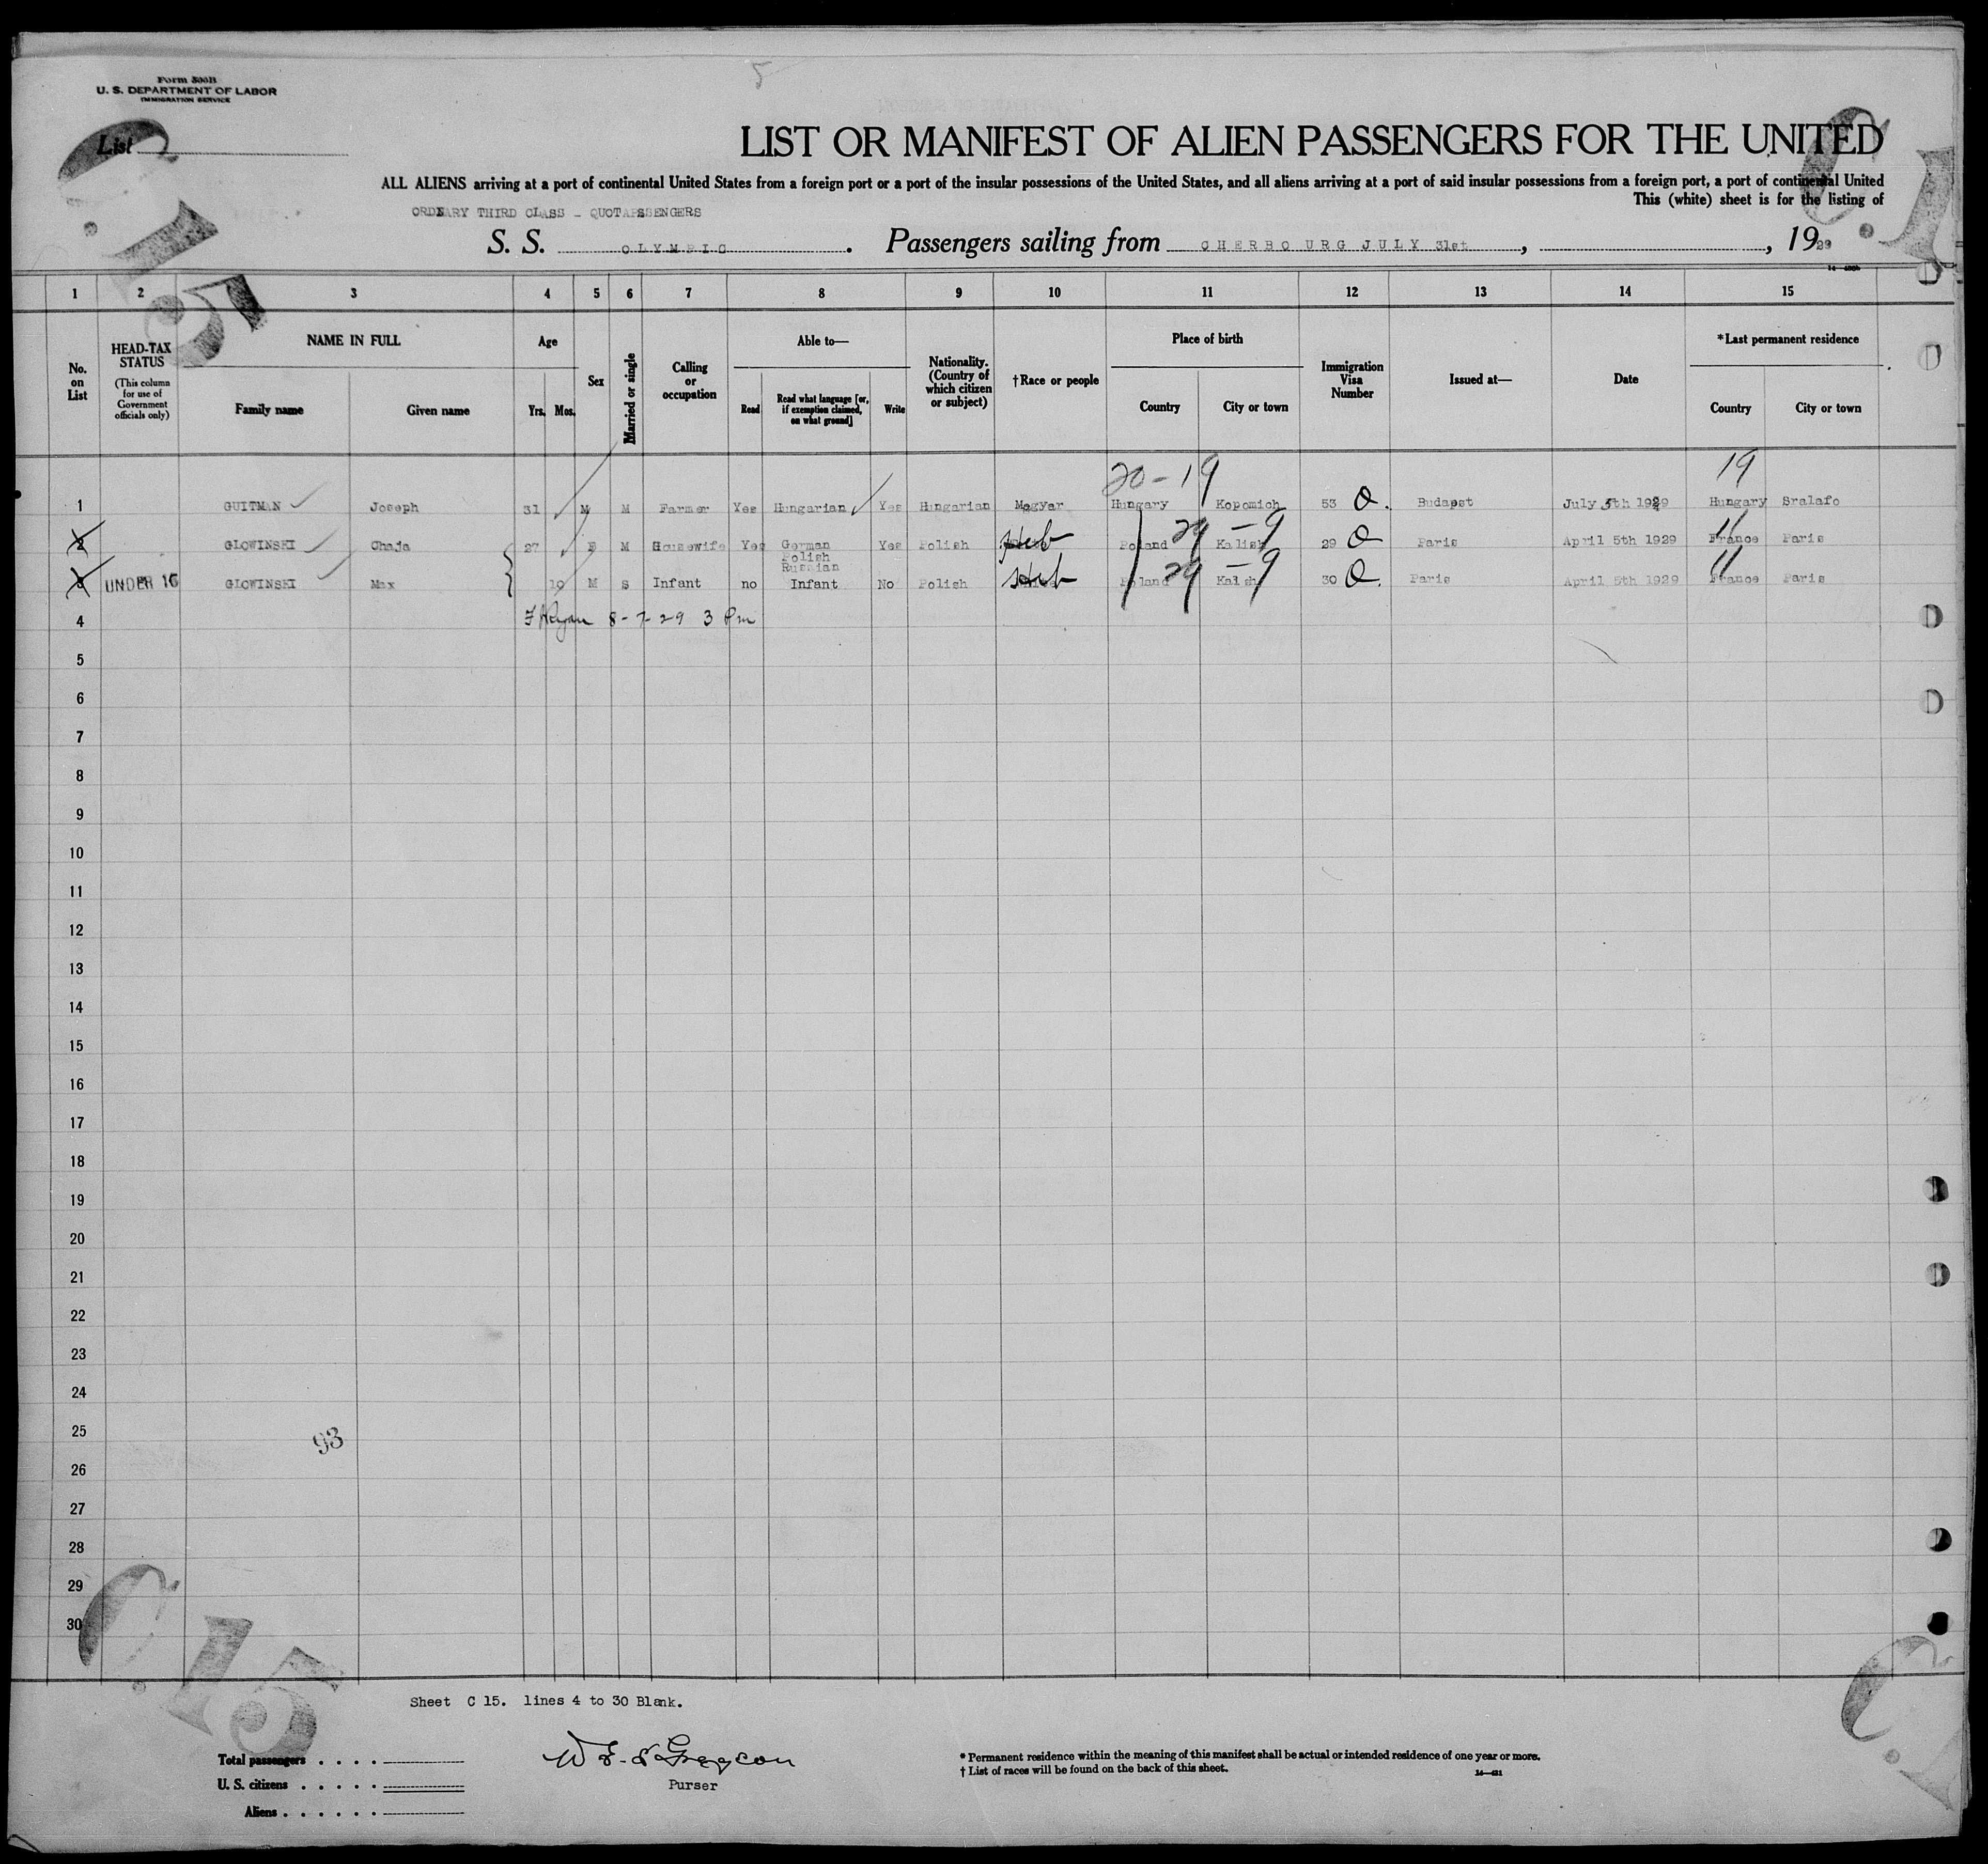 5
Form 500B
U. S. DEPARTMENT OF LABOR
IMMIGRATION SERVICE
List
C.15
C.1
LIST OR MANIFEST OF ALIEN PASSENGERS FOR THE UNITED
ALL ALIENS arriving at a port of continental United States from a foreign port or a port of the insular possessions of the United States, and all aliens arriving at a port of said insular possessions from a foreign port, a port of continental United
This (white) sheet is for the listing of
ORDNARY THIRD CLASS - QUOTA
S. S. OLYMPIC. Passengers sailing from CHERBOURG JULY 31st, , 1929
1 2 3 4 5 6 7 8 9 10 11 12 13 14 15
No. on List HEAD-TAX STATUS (This column for use of Government officials only) NAME IN FULL Family name Given name Age Yrs. Mos. Sex Married or single Calling or occupation Able to— Read Read what language [or, if exemption claimed, on what ground] Write Nationality. (Country of which citizen or subject) †Race or people Place of birth Country City or town Immigration Visa Number Issued at— Date *Last permanent residence Country City or town
20-19 19
1 GUITMAN Joseph 31 M M Farmer Yes Hungarian Yes Hungarian Magyar Hungary Kopomich 53 Q. Budapst July 5th 1929 Hungary Sralafo
2 GLOWINSKI Chaja 27 F M Housewife Yes German Polish Russian Yes Polish Heb Poland 29-9 Kalish 29 Q Paris April 5th 1929 France 11 Paris
3 UNDER 16 GLOWINSKI Max 10 M S Infant no Infant No Polish Heb Poland 29-9 Kalsh 30 Q. Paris April 5th 1929 France 11 Paris
4 F H Ryan 8-7-29 3 Pm
5
6
7
8
9
10
11
12
13
14
15
16
17
18
19
20
21
22
23
24
25
93
26
27
28
29
30
C.15
C.1
Sheet C 15. lines 4 to 30 Blank.
Total passengers . . . .
U. S. citizens . . . . .
Aliens . . . . . .
Purser
* Permanent residence within the meaning of this manifest shall be actual or intended residence of one year or more.
† List of races will be found on the back of this sheet.